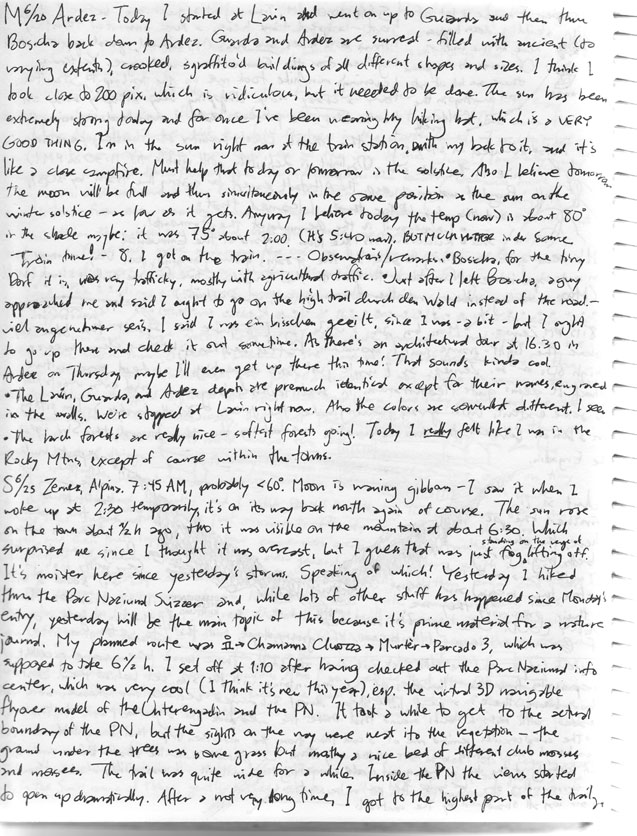 M 6/20 Ardez - Today I started at Lavin and went on up to Guarda and then thru
Boscha back down to Ardez. Guarda and Ardez are surreal - filled with ancient (to
varying extents), crooked, sgraffito'd buildings of all different shapes and sizes. I think I
took close to 200 pix, which is ridiculous, but it needed to be done. The sun has been
extremely strong today and for once I've been wearing my hiking hat, which is a VERY
GOOD THING. I'm in the sun right now at the train station, with my back to it, and it's
like a close campfire. Must help that today or tomorrow is the solstice. Also I believe tomorrow
the moon will be full and then simultaneously in the same position as the sun on the
winter solstice - as low as it gets. Anyway I believe today the temp (now) is about 80°
in the shade maybe; it was 75° about 2:00. (It's 5:40 now). BUT MUCH HOTTER in der Sonne
Train time! - I got on the train. --- Observations/remarks: • Boscha, for the tiny
Dorf it is, was very trafficky, mostly with agricultural traffic. • Just after I left Boscha, a guy
approached me and said I ought to go on the high trail durch den Wald instead of the road -
viel angenehmer seis. I said I was ein bisschen geeilt, since I was - a bit - but I ought
to go up there and check it out sometime. As there's an architectural tour at 16.30 in
Ardez on Thursday, maybe I'll even get up there this time! That sounds kinda cool.
• The Lavin, Guarda, and Ardez depots are premuch identical except for their names, engraved
in the walls. We're stopped at Lavin right now. Also the colors are somewhat different, I see.
• The larch forests are really nice - softest forests going! Today I really felt like I was in the
Rocky Mtns, except of course within the towns.
S 6/25 Zernez, Alpina. 7:45 AM, probably <60°. Moon is waning gibbous - I saw it when I
woke up at 2:30 temporarily, it's on its way back north again of course. The sun rose
on the town about 1/2 h ago, tho it was visible on the mountain at about 6:30. Which
surprised me since I thought it was overcast, but I guess that was just fog, standing on the verge of lifting off.
It's moister here since yesterday's storms. Speaking of which! Yesterday I hiked
thru the Parc Naziunal Svizzer and, while lots of other stuff has happened since Monday's
entry, yesterday will be the main topic of this because it's prime material for a nature
journal. My planned route was → Chamanna Cluozza → Murter → Parcado 3, which was
supposed to take 6 1/2 h. I set off at 1:10 after having checked out the Parc Naziunal info
center, which was very cool (I think it's new this year), esp. the virtual 3D navigable
flyover model of the Unterengadin and the PN. It took a while to get to the actual
boundary of the PN, but the sights on the way were neat in the vegetation - the
ground under the trees was some grass but mostly a nice bed of different club mosses
and mosses. The trail was quite nice for a while. Inside the PN the views started
to open up dramatically. After a not very long time, I got to the highest part of the trail,